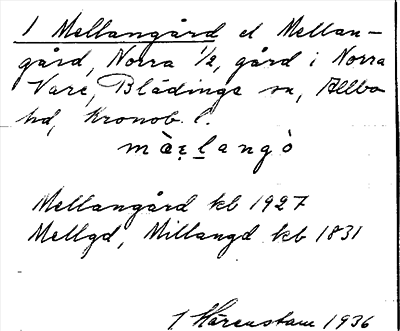 1 Mellangård el Mellan-
gård, Norra 1/2, gård i Norra
Vare, Blädinge sn, Allbo
hd, Kronob. l.
Mellangård kb 1927
Mellgd, Millangd kb 1831
Härenstam 1936